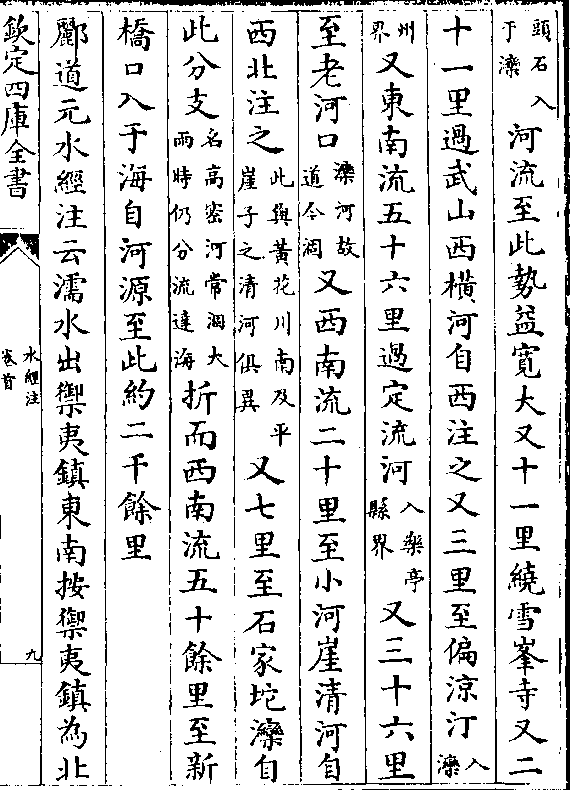 頭石入于灤河流至此勢益寛大又十一里繞雪峯寺又二
十一里過武山西橫河自西注之又三里至偏涼汀入灤
州界又東南流五十六里過定流河入樂亭縣界又三十六里
至老河口灤河故道今涸又西南流二十里至小河崖清河自
西北注之此與黃花川南及平崖子之清河俱異又七里至石家坨灤自
此分支名高密河常涸大雨時仍分流達海折而西南流五十餘里至新
橋口入于海自河源至此約二千餘里
酈道元水經注云濡水出禦夷鎮東南按禦夷鎮為北
欽定四庫全書
水經注
卷首
九